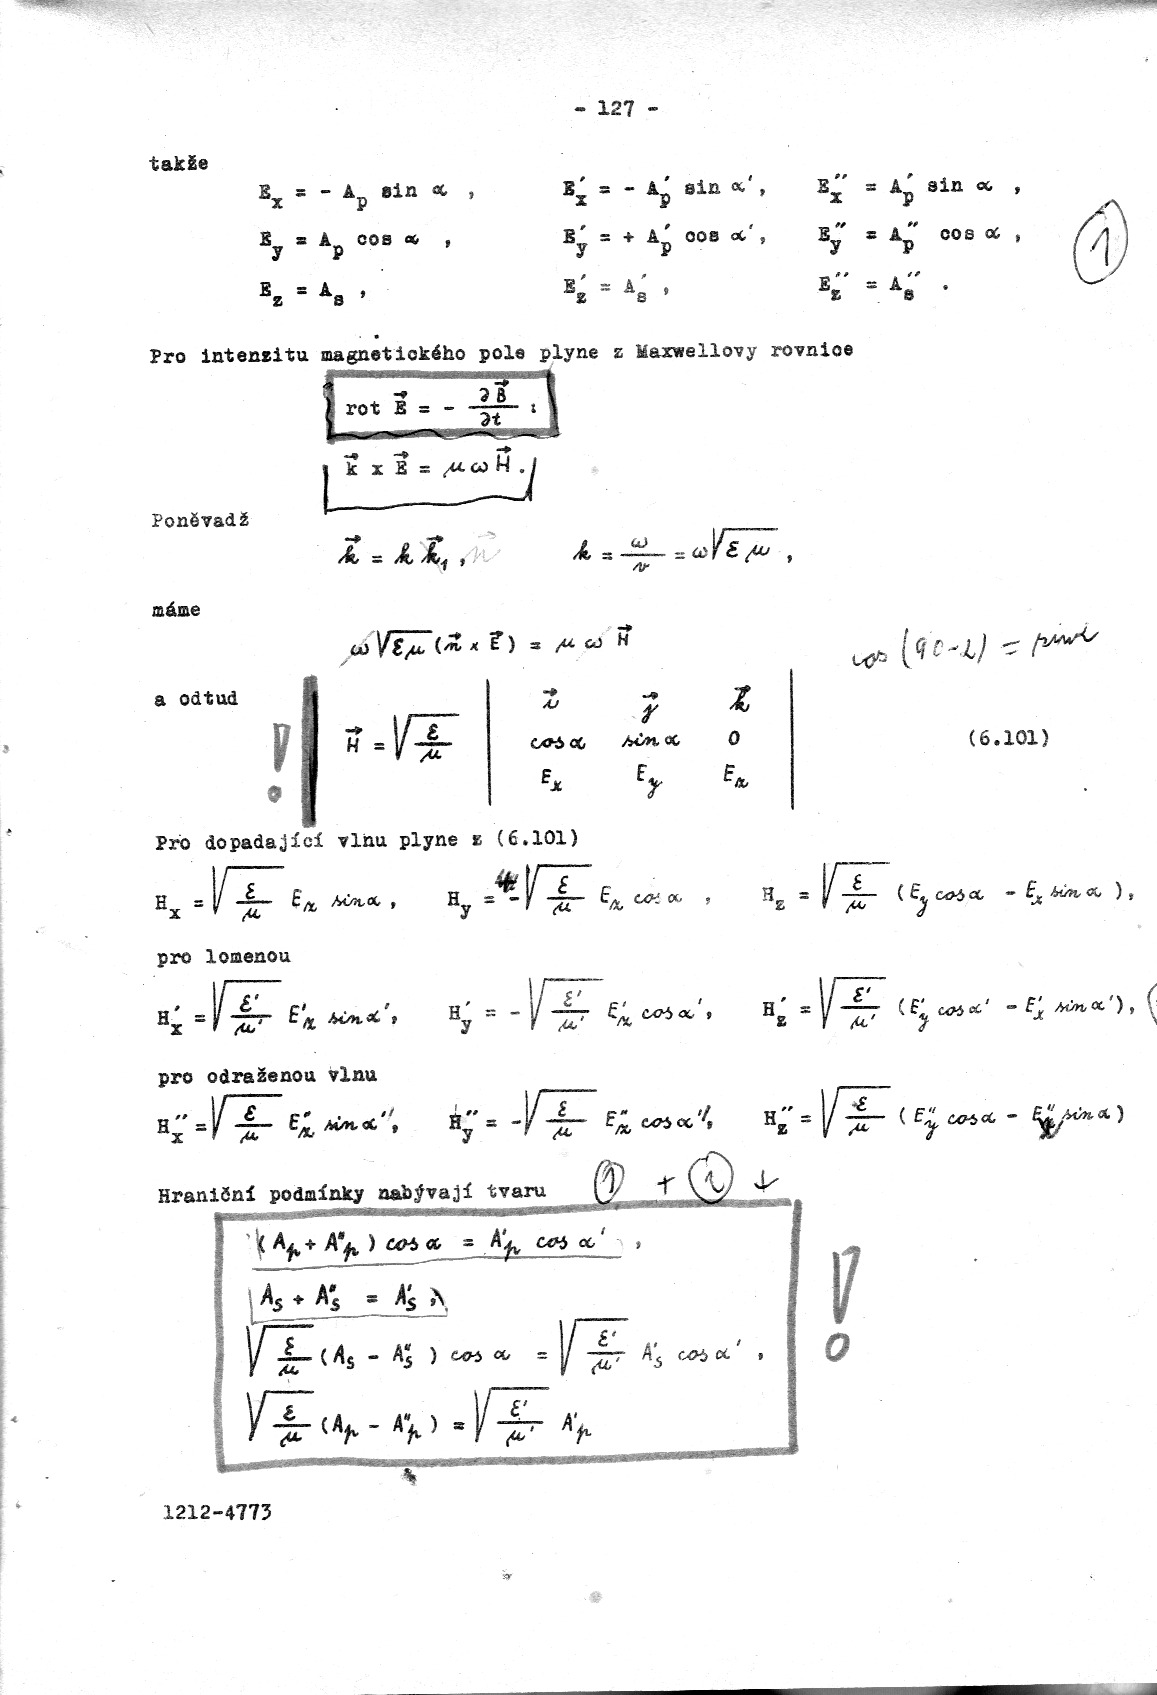 - 127 -
takže
E_x = - A_p sin α , E′_x = - A′_p sin α′, E″_x = A′_p sin α ,
E_y = A_p cos α , E′_y = + A′_p cos α′, E″_y = A″_p cos α ,
E_z = A_s , E′_z = A′_s , E″_z = A″_s .
1
Pro intenzitu magnetického pole plyne z Maxwellovy rovnice
rot E⃗ = - ∂B⃗/∂t :
k⃗ x E⃗ = μ ω H⃗ .
Poněvadž
k⃗ = k k⃗₁ , n⃗ k = ω/v = ω√(εμ) ,
máme
ω√(εμ) (n⃗ x E⃗) = μ ω H⃗
cos (90-α) = sinα
a odtud
! H⃗ = √(ε/μ) | i⃗ j⃗ k⃗ |
| cosα sinα 0 | (6.101)
| E_x E_y E_z |
Pro dopadající vlnu plyne z (6.101)
H_x = √(ε/μ) E_z sinα , H_y = -√(ε/μ) E_z cosα , H_z = √(ε/μ) (E_y cosα - E_x sinα ),
pro lomenou
H′_x = √(ε′/μ′) E′_z sinα′, H′_y = -√(ε′/μ′) E′_z cosα′, H′_z = √(ε′/μ′) (E′_y cosα′ - E′_x sinα′),
pro odraženou vlnu
H″_x = √(ε/μ) E″_z sinα″, H″_y = -√(ε/μ) E″_z cosα″, H″_z = √(ε/μ) (E″_y cosα - E″_x sinα)
Hraniční podmínky nabývají tvaru 1 + 2 ↓
(A_p + A″_p ) cosα = A′_p cos α′ ,
A_s + A″_s = A′_s ,
√(ε/μ) (A_s - A″_s ) cos α = √(ε′/μ′) A′_s cosα′ , !
√(ε/μ) (A_p - A″_p ) = √(ε′/μ′) A′_p
1212-4773